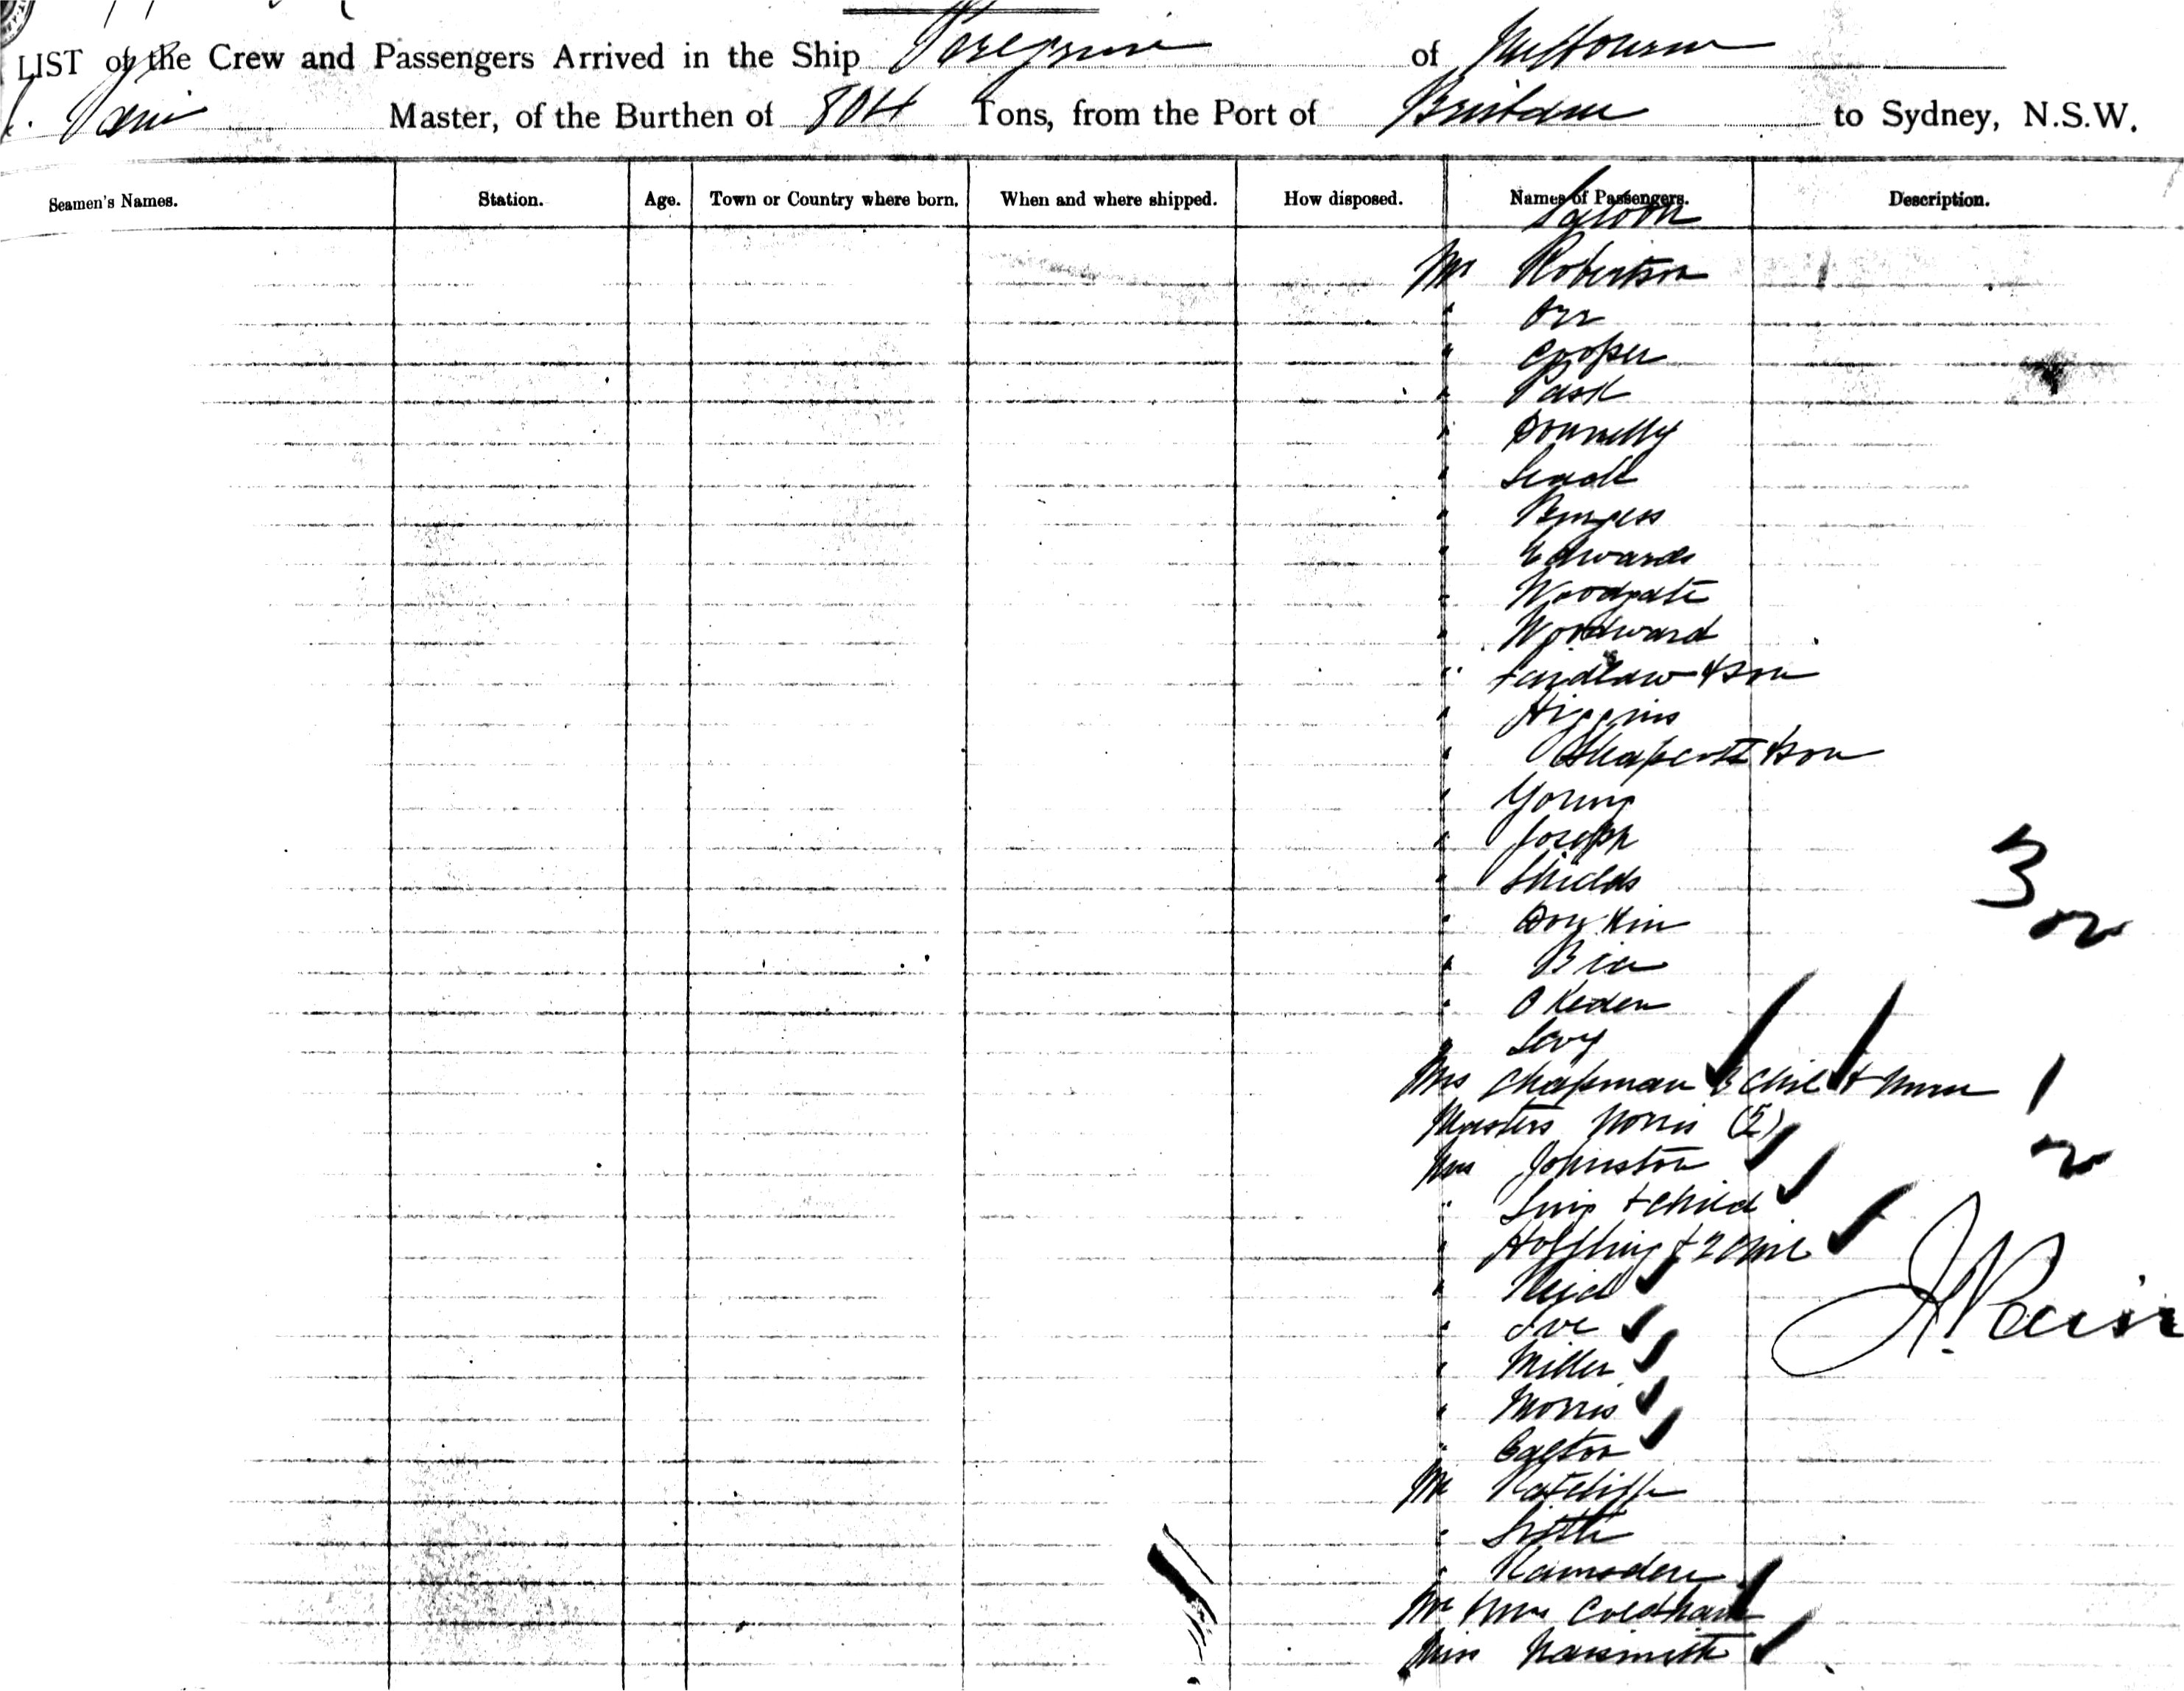 LIST of the Crew and Passengers Arrived in the Ship Peregrine of Melbourne
Master, of the Burthen of 804 Tons, from the Port of Brisbane to Sydney, N.S.W.
Seamen's Names. Station. Age. Town or Country where born. When and where shipped. How disposed. Names of Passengers. Description.
Saloon
Mr Robertson
" Orr
" Cooper
" Pask
" Donnelly
"
" Burgess
" Edwards
" Woodgate
" Woodward
" & son
" Higgins
" Shapcott & son
" Young
" Joseph
" Shields
"
"
" O Keden
" Levy
3
Mrs Chapman 3 Chil + Nurse
1
Masters Norris (2)
Mrs Johnston
" + Child
" + 2 Chil
" Reid
" Ive
" Miller
" Morris
"
Mr Ratcliffe
"
" Ramsden
Mr & Mrs Coldham
Miss Naismith